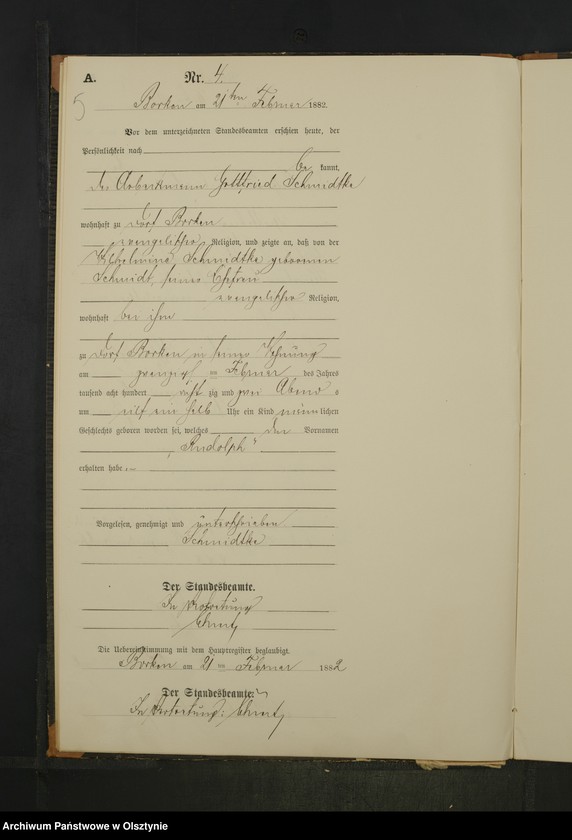 A. Nr. 4.
5
Borken am 21ten Februar 1882.
Vor dem unterzeichneten Standesbeamten erschien heute, der
Persönlichkeit nach
be kannt,
der Gottfried Schmidtke
wohnhaft zu Dorf Borken
evangelischer Religion, und zeigte an, daß von der
Wilhelmine Schmidtke geborenen
Schmidt, seiner Ehefrau
evangelischer Religion,
wohnhaft bei ihm
zu Dorf Borken in seiner Wohnung
am zwanzigsten Februar des Jahres
tausend acht hundert acht zig und zwei Abends
um elf ein halb Uhr ein Kind männlichen
Geschlechts geboren worden sei, welches den Vornamen
„Rudolph"
erhalten habe
Vorgelesen, genehmigt und unterschrieben
Schmidtke
Der Standesbeamte.
In Vertretung
Die Uebereinstimmung mit dem Hauptregister beglaubigt.
Borken am 21 ten Februar 1882
Der Standesbeamte.
In Vertretung:
Archiwum Państwowe w Olsztynie